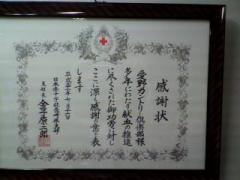 感謝状
愛野カントリー倶楽部様
多年にわたり献血の推進
に尽くされた御功労に対し
ここに深く感謝の意を表
します
日本赤十字社長崎県支部
支部長 金子原二郎